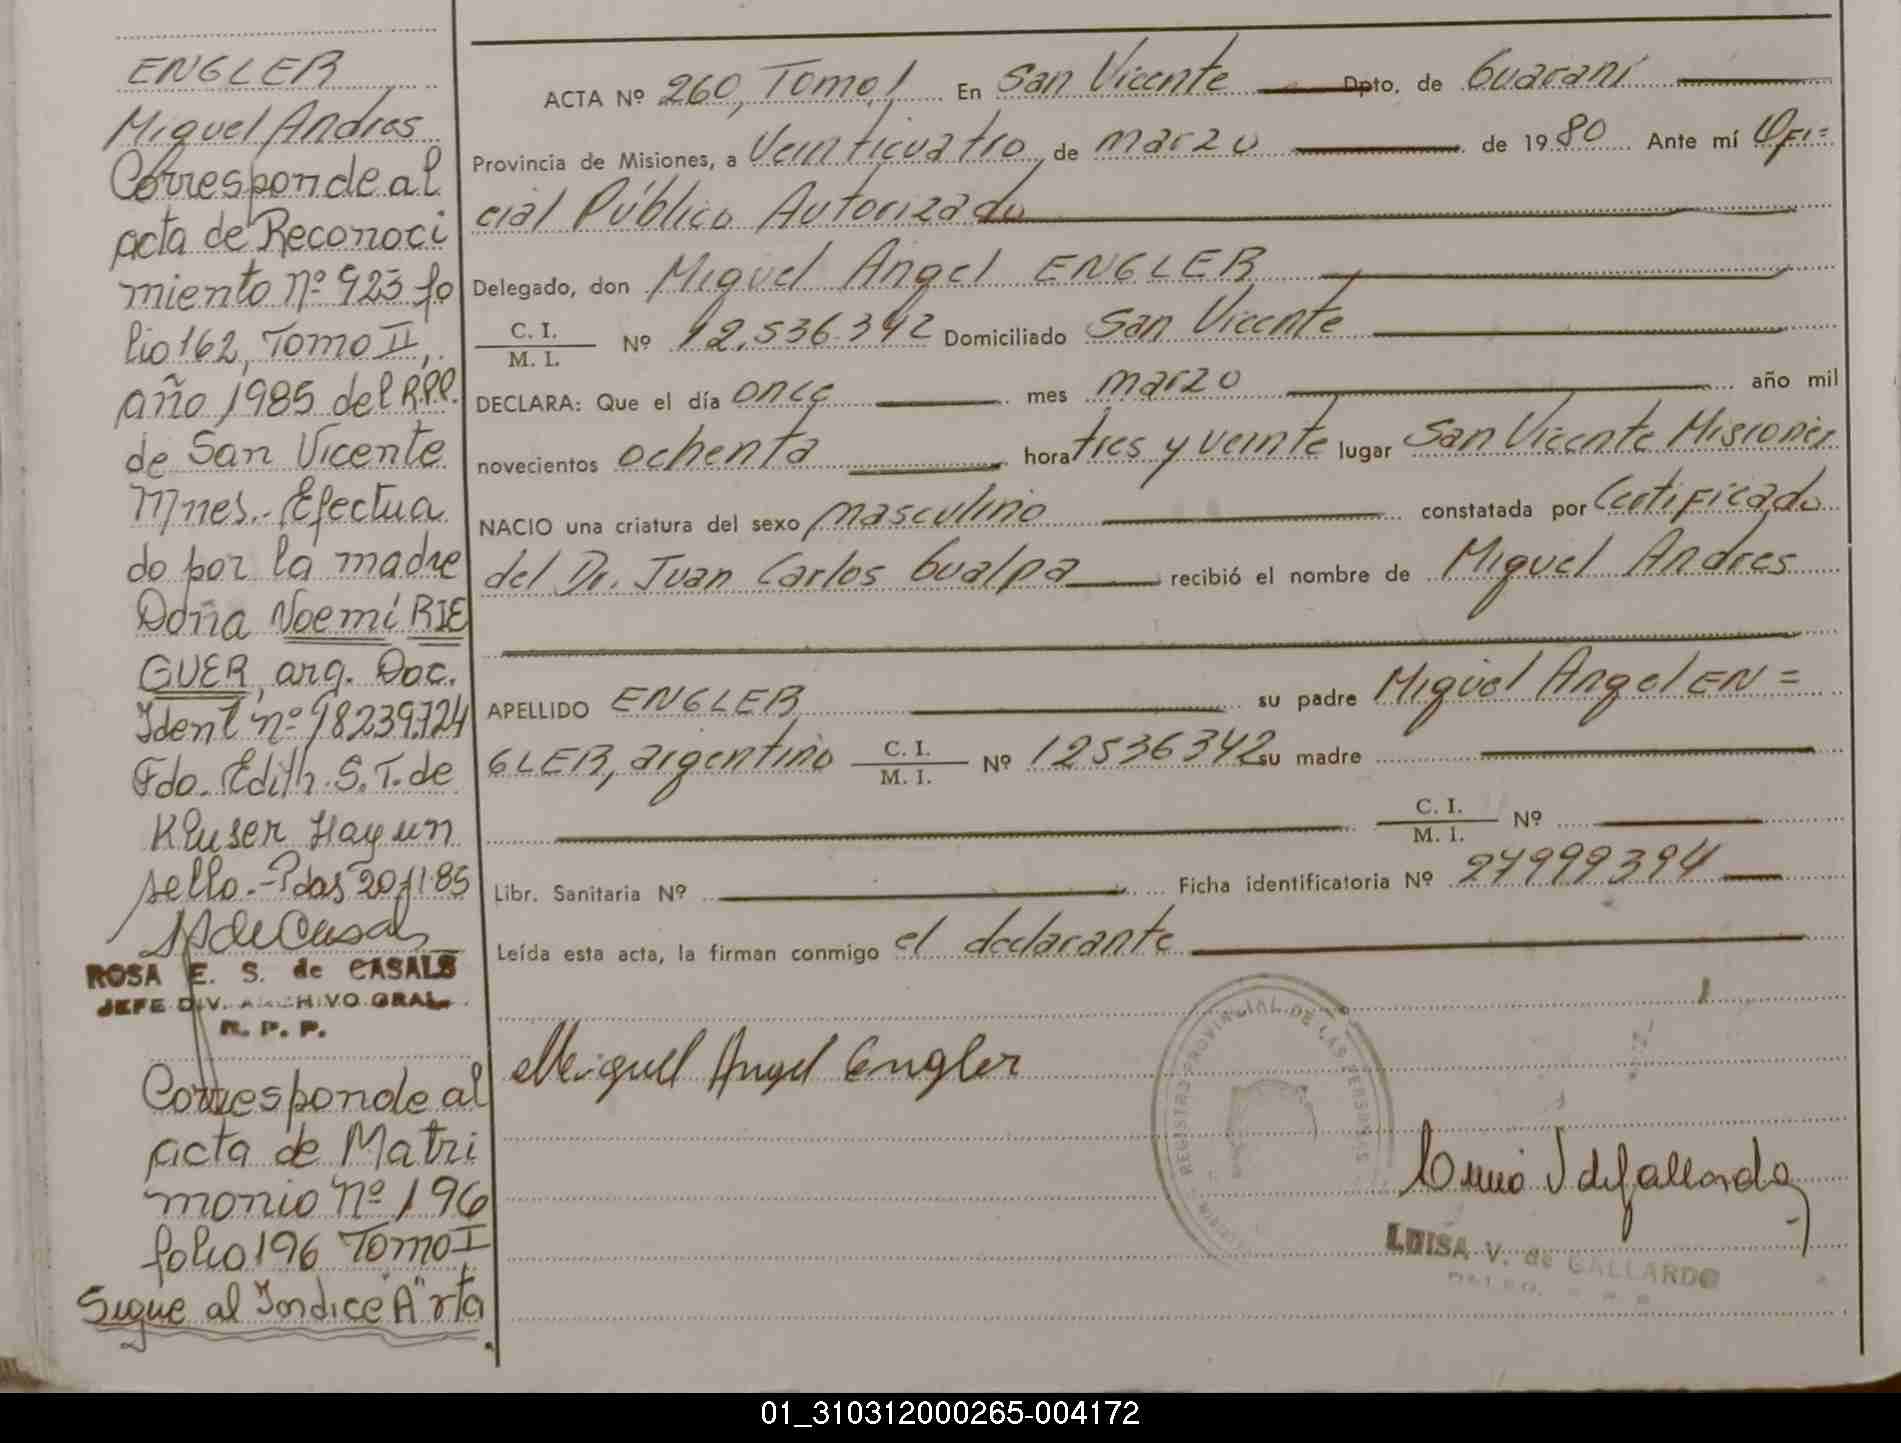 ENGLER
Miguel Andres
Corresponde al
acta de Reconoci
miento nº 923 fo
lio 162, Tomo II,
año 1985 del R.P.P.
de San Vicente
Mnes.- Efectua
do por la madre
Doña Noemí RIE
GUER, arg. Doc.
Ident nº 18239.724
Fdo. Edith. S. T. de
Kluser Hay un
sello.- Pdas 20-11-85
ROSA E. S. de CASALS
JEFE DIV. ARCHIVO GRAL.
R. P. P.
Corresponde al
acta de Matri
monio nº 196
folio 196 Tomo I
Sigue al Indice "A" rta
ACTA Nº 260, Tomo I En San Vicente Dpto, de Guaraní
Provincia de Misiones, a Veinticuatro de marzo de 1980 Ante mí Ofi=
cial Público Autorizado
Delegado, don Miguel Angel ENGLER
C. I.
M. I. Nº 12.536.342 Domiciliado San Vicente
DECLARA: Que el día once mes marzo año mil
novecientos ochenta hora tres y veinte lugar San Vicente Misiones
NACIO una criatura del sexo masculino constatada por Certificado
del Dr. Juan Carlos Gualpa recibió el nombre de Miguel Andres
APELLIDO ENGLER su padre Miguel Angel EN=
GLER, argentino C. I. M. I. Nº 12536342 su madre
C. I.
M. I. Nº
Libr. Sanitaria Nº Ficha identificatoria Nº 27999394
Leída esta acta, la firman conmigo el declarante
REGISTRO PROVINCIAL DE LAS PERSONAS
Miguel Angel Engler
LUISA V. de GALLARDO
01_310312000265-004172